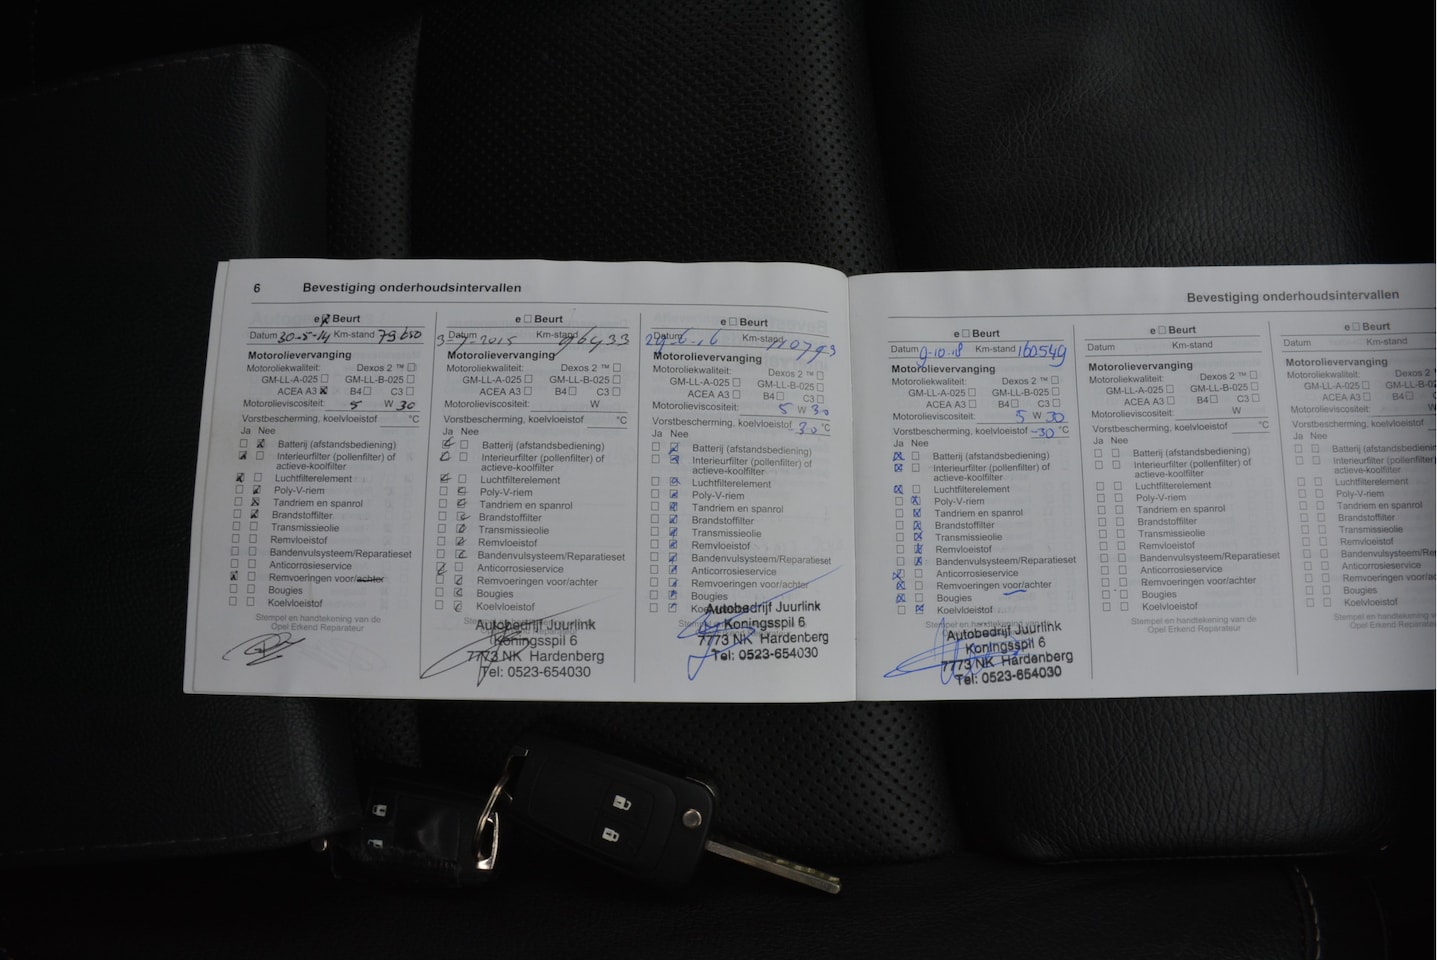 6 Bevestiging onderhoudsintervallen
e Beurt
Datum 30-5-14 Km-stand 79650
Motorolievervanging
Motoroliekwaliteit: Dexos 2 ™
GM-LL-A-025 GM-LL-B-025
ACEA A3 B4 C3
Motorolieviscositeit: 5 W 30
Vorstbescherming, koelvloeistof °C
Ja Nee
Batterij (afstandsbediening)
Interieurfilter (pollenfilter) of
actieve-koolfilter
Luchtfilterelement
Poly-V-riem
Tandriem en spanrol
Brandstoffilter
Transmissieolie
Remvloeistof
Bandenvulsysteem/Reparatieset
Anticorrosieservice
Remvoeringen voor/achter
Bougies
Koelvloeistof
Stempel en handtekening van de
Opel Erkend Reparateur
e Beurt
Datum 2015 Km-stand 96433
Motorolievervanging
Motoroliekwaliteit: Dexos 2 ™
GM-LL-A-025 GM-LL-B-025
ACEA A3 B4 C3
Motorolieviscositeit: W
Vorstbescherming, koelvloeistof °C
Ja Nee
Batterij (afstandsbediening)
Interieurfilter (pollenfilter) of
actieve-koolfilter
Luchtfilterelement
Poly-V-riem
Tandriem en spanrol
Brandstoffilter
Transmissieolie
Remvloeistof
Bandenvulsysteem/Reparatieset
Anticorrosieservice
Remvoeringen voor/achter
Bougies
Koelvloeistof
Autobedrijf Juurlink
Koningsspil 6
7773 NK Hardenberg
Tel: 0523-654030
e Beurt
Datum Km-stand 110793
Motorolievervanging
Motoroliekwaliteit: Dexos 2 ™
GM-LL-A-025 GM-LL-B-025
ACEA A3 B4 C3
Motorolieviscositeit: 5 W 30
Vorstbescherming, koelvloeistof -30 °C
Ja Nee
Batterij (afstandsbediening)
Interieurfilter (pollenfilter) of
actieve-koolfilter
Luchtfilterelement
Poly-V-riem
Tandriem en spanrol
Brandstoffilter
Transmissieolie
Remvloeistof
Bandenvulsysteem/Reparatieset
Anticorrosieservice
Remvoeringen voor/achter
Bougies
Autobedrijf Juurlink
Koningsspil 6
7773 NK Hardenberg
Tel: 0523-654030
Bevestiging onderhoudsintervallen
e Beurt
Datum 9-10-18 Km-stand 160549
Motorolievervanging
Motoroliekwaliteit: Dexos 2 ™
GM-LL-A-025 GM-LL-B-025
ACEA A3 B4 C3
Motorolieviscositeit: 5 W 30
Vorstbescherming, koelvloeistof -30 °C
Ja Nee
Batterij (afstandsbediening)
Interieurfilter (pollenfilter) of
actieve-koolfilter
Luchtfilterelement
Poly-V-riem
Tandriem en spanrol
Brandstoffilter
Transmissieolie
Remvloeistof
Bandenvulsysteem/Reparatieset
Anticorrosieservice
Remvoeringen voor/achter
Bougies
Koelvloeistof
Autobedrijf Juurlink
Koningsspil 6
7773 NK Hardenberg
Tel: 0523-654030
e Beurt
Datum Km-stand
Motorolievervanging
Motoroliekwaliteit: Dexos 2 ™
GM-LL-A-025 GM-LL-B-025
ACEA A3 B4 C3
Motorolieviscositeit: W
Vorstbescherming, koelvloeistof °C
Ja Nee
Batterij (afstandsbediening)
Interieurfilter (pollenfilter) of
actieve-koolfilter
Luchtfilterelement
Poly-V-riem
Tandriem en spanrol
Brandstoffilter
Transmissieolie
Remvloeistof
Bandenvulsysteem/Reparatieset
Anticorrosieservice
Remvoeringen voor/achter
Bougies
Koelvloeistof
Stempel en handtekening van de
Opel Erkend Reparateur
e Beurt
Datum Km-stand
Motorolievervanging
Motoroliekwaliteit: Dexos 2
GM-LL-A-025 GM-LL-B-02
ACEA A3 B4 C3
Motorolieviscositeit: W
Vorstbescherming, koelvloeistof
Ja Nee
Batterij (afstandsbediening
Interieurfilter (pollenfilter)
actieve-koolfilter
Luchtfilterelement
Poly-V-riem
Tandriem en spanrol
Brandstoffilter
Transmissieolie
Remvloeistof
Bandenvulsysteem/Repa
Anticorrosieservice
Remvoeringen voor/achter
Bougies
Koelvloeistof
Stempel en handtekening van
Opel Erkend Reparateur